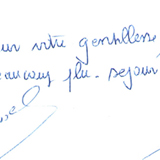 ur votre gentillesse
eaucoup plu. séjour